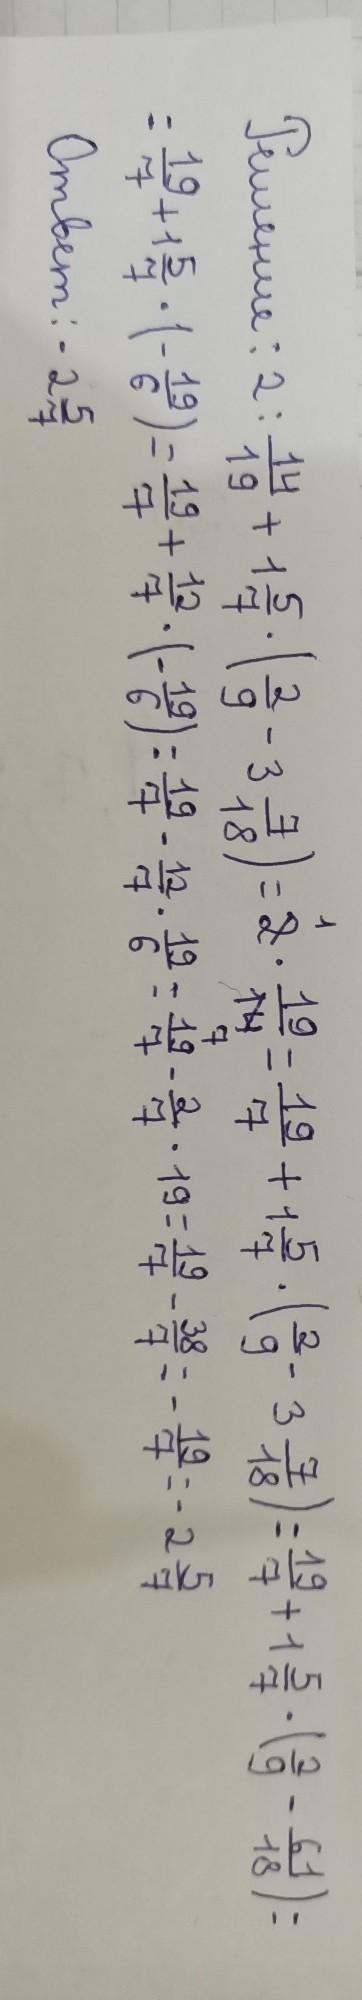 Решение: 2 : 14/19 + 1 5/7 · (2/9 - 3 7/18) = 2 1 · 19/14 7 = 19/7 + 1 5/7 · (2/9 - 3 7/18) = 19/7 + 1 5/7 · (2/9 - 61/18) =
= 19/7 + 1 5/7 · (-19/6) = 19/7 + 12/7 · (-19/6) = 19/7 - 12/7 · 19/6 = 19/7 - 2/7 · 19 = 19/7 - 38/7 = - 19/7 = - 2 5/7
Ответ: - 2 5/7